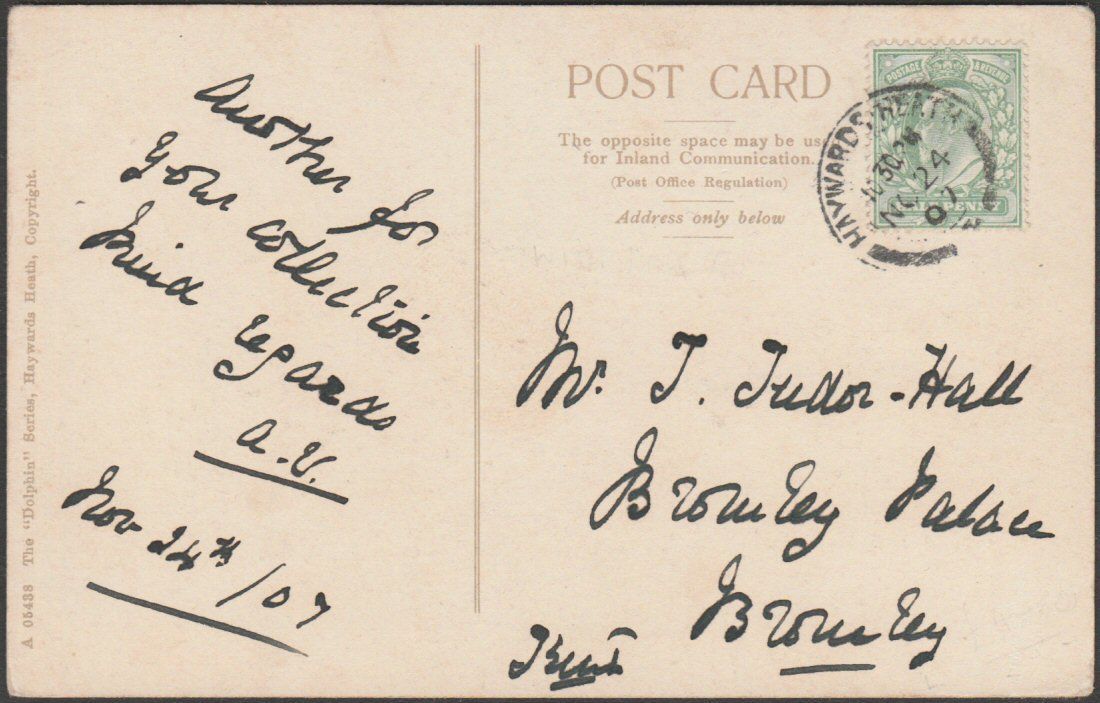 Another for
Your collection
Kind regards
A.V.
Nov 24th/07
A 05438 The "Dolphin" Series, Haywards Heath, Copyright.
POST CARD
The opposite space may be use
for Inland Communication.
(Post Office Regulation)
Address only below
POSTAGE & REVENUE
PENNY
HAYWARDS HEATH
10 30
NO 24
07
Mr. T. Tudor-Hall
Bromley Palace
Bromley
Kent